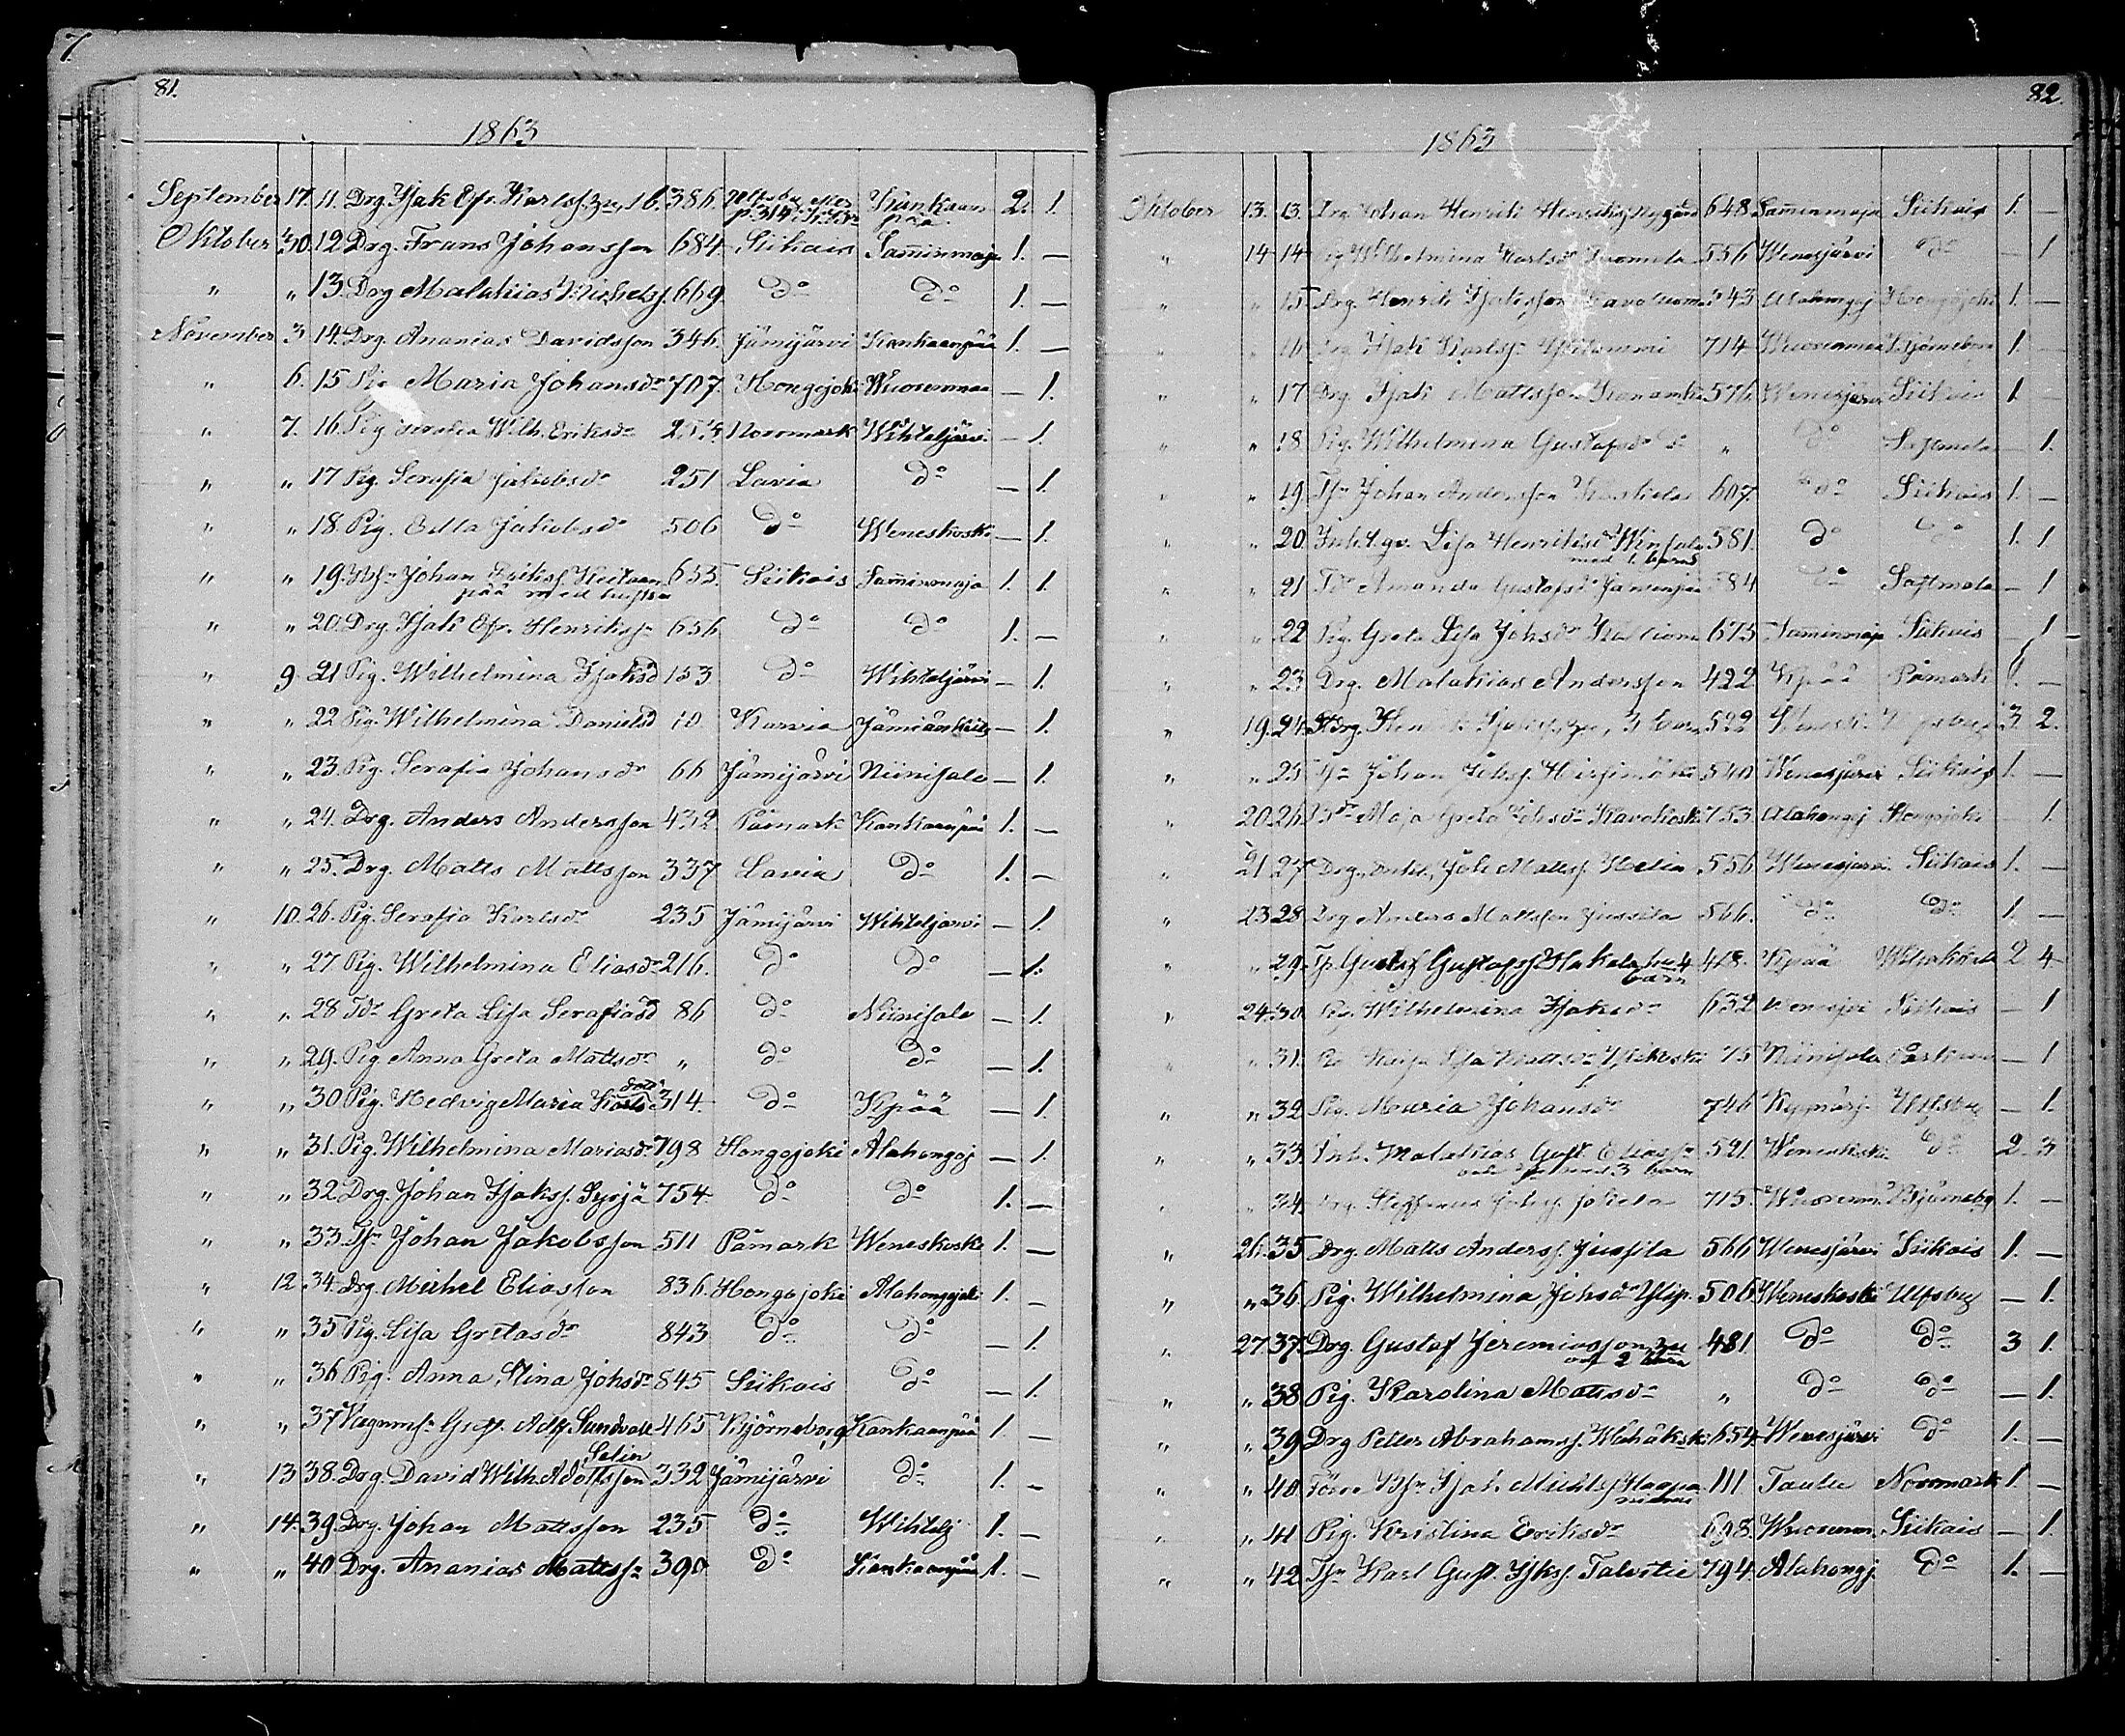 7.
81.
1863
September 17. 11. Drg. Isak Efr. Karlss. 1 b. 386. Kankaanpää 2. 1.
Oktober 30. 12. Drg. Frans Johansson 684 Siikais Samminmaja 1. —
" " 13. Drg Malakias Michelss. 669 do do 1. —
November 3 14. Drg. Ananias Davidsson 346. Jämijärvi Kankaanpää 1. —
" 6. 15 Pig Maria Johansdr 707. Hongojoki Wuorenmaa — 1.
" 7. 16. Pig Serafia Wilh. Eriksdr Norrmark Wihteljärvi — 1.
" " 17 Pig. Serafia Jakobsdr 251 Lavia do — 1.
" " 18. Pig. Edla Jakobsdr 506 do Weneskoski — 1.
" " 19. Johan Erikss. Kietaanpää med hustru 653 Siikais Samminmaja 1. 1.
" " 20. Drg. Isak Efr. Henrikssn 656 do do 1. —
" 9. 21 Pig. Wilhelmina Isaksd 153 do Wihteljärvi — 1.
" " 22 Pig. Wilhelmina Danielsd 10. Karvia Jämiänkeits — 1.
" " 23. Pig. Serafia Johansdr 66 Jämijärvi Niinisalo — 1.
" " 24. Drg. Anders Andersson 432 Påmark Kankaanpää 1. —
" " 25. Drg. Matts Mattsson 337 Lavia do 1. —
" 10. 26. Pig. Serafia Karlsdr 235 Jämijärvi Wihteljärvi — 1.
" " 27 Pig. Wilhelmina Eliasdr 216. do do — 1.
" " 28 Greta Lisa Serafiasd 86 do Niinisalo — 1.
" " 29. Pig Anna Greta Mattsdr " do do — 1.
" " 30 Pig. Hedvig Maria Karls dotr 314 do Kpää — 1.
" " 31. Pig. Wilhelmina Mariasdr 798 Hongojoki Alahongoj — 1.
" " 32. Drg. Johan Isakss. Syrjä 754 do do 1. —
" " 33. Johan Jakobsson 511 Påmark Weneskoski 1. —
" 12 34. Drg. Michel Eliasson 836. Hongojoki Alahongojoki 1. —
" " 35 Pig. Lisa Gretasdr 843 do do — 1.
" " 36 Pig. Anna Stina Johsdr 845 Siikais do — 1.
" " 37 Gust. Adf Sundvall 465 Björneborg Kankaanpää 1 —
" 13 38. Drg. David Wilh. Adolfsson Selin 332 Jämijärvi do 1. —
" 14. 39. Drg. Johan Mattsson 235 do Wihtelj 1. —
" " 40 Drg. Ananias Mattssn 390 do Kankaanpää 1. —
82.
1863
Oktober 13. 13. Drg Johan Henrik Henrikss Nygård 648. Samminmaja Siikais 1. —
" 14 14 Pig Wilhelmina Karlsdr 556 Wenesjärvi do — 1
" " 15 Drg. Henrik Isaksson 843 Alahongoj Hongojoki 1. —
" " 16 Drg. Isak Karlssn 714 Wuorenmaa Björneborg 1. —
" " 17 Drg. Isak Mattsson 576. Wenesjärvi Siikais 1. —
" " 18. Pig. Wilhelmina Gustafsdr do " do Sastmola — 1.
" " 19 Johan Andersson 607. do Siikais 1. —
" " 20. Lisa Henriksdr med 1. barn 581. do do 1. 1.
" " 21 Amanda Gustafsdr 584 do Sastmola — 1
" " 22 Pig. Greta Lisa Johsdr Kallioniemi 675 Samminmaja Siikais — 1
" " 23 Drg. Malakias Andersson 422 Kpää Påmark 1. —
" 19. 24. 3 barn 522 3. 2.
" " 25 Johan Johss. Hirsimäki 540 Wenesjärvi Siikais 1. —
" 20. 26. Maja Greta Johsdr 753 Alahongoj Hongojoki — 1
" 21 27 Drg. Joh Mattss. Helin 556 Wenesjärvi Siikais 1. —
" 23 28 Drg Anders Mattsson Jussila 566. do do 1. —
" " 29. Gustaf Gustafss. Hakala 4 barn 448. Kpää 2 4
" 24 30 Pig. Wilhelmina Isaksdr 632 Siikais — 1
" " 31. Kaisa Lisa Mattsdr 75 Niinisalo Parkano — 1
" " 32 Pig. Maria Johansdr 746 Ulfsby — 1.
" " 33. Inh. Malakias Gust Eliassn med 3 barn 521. Weneskoski do 2 3
" " 34 Drg. Steffanus 715. Wuorenm. Björnebg 1. —
" 26. 35 Drg. Matts Anderss. Jussila 566 Wenesjärvi Siikais 1. —
" " 36. Pig. Wilhelmina Johsdr 506 Weneskoski Ulfsby — 1.
" 27. 37. Drg. Gustaf Jeremiasson och 2 barn 481. do do 3 1.
" " 38 Pig. Karolina Mattsdr " do do — 1.
" " 39. Drg Petter Abrahamss. Wähäkoski 654 Wenesjärvi do 1. —
" " 40. Isak Michelss Haapaniemi 111 Taulu Norrmark 1. —
" " 41 Pig. Kristina Eriksdr 698. Wuorenm. Siikais — 1.
" " 42. Karl Gust. Isakss. Talvitie 794 Alahongj. do 1. —